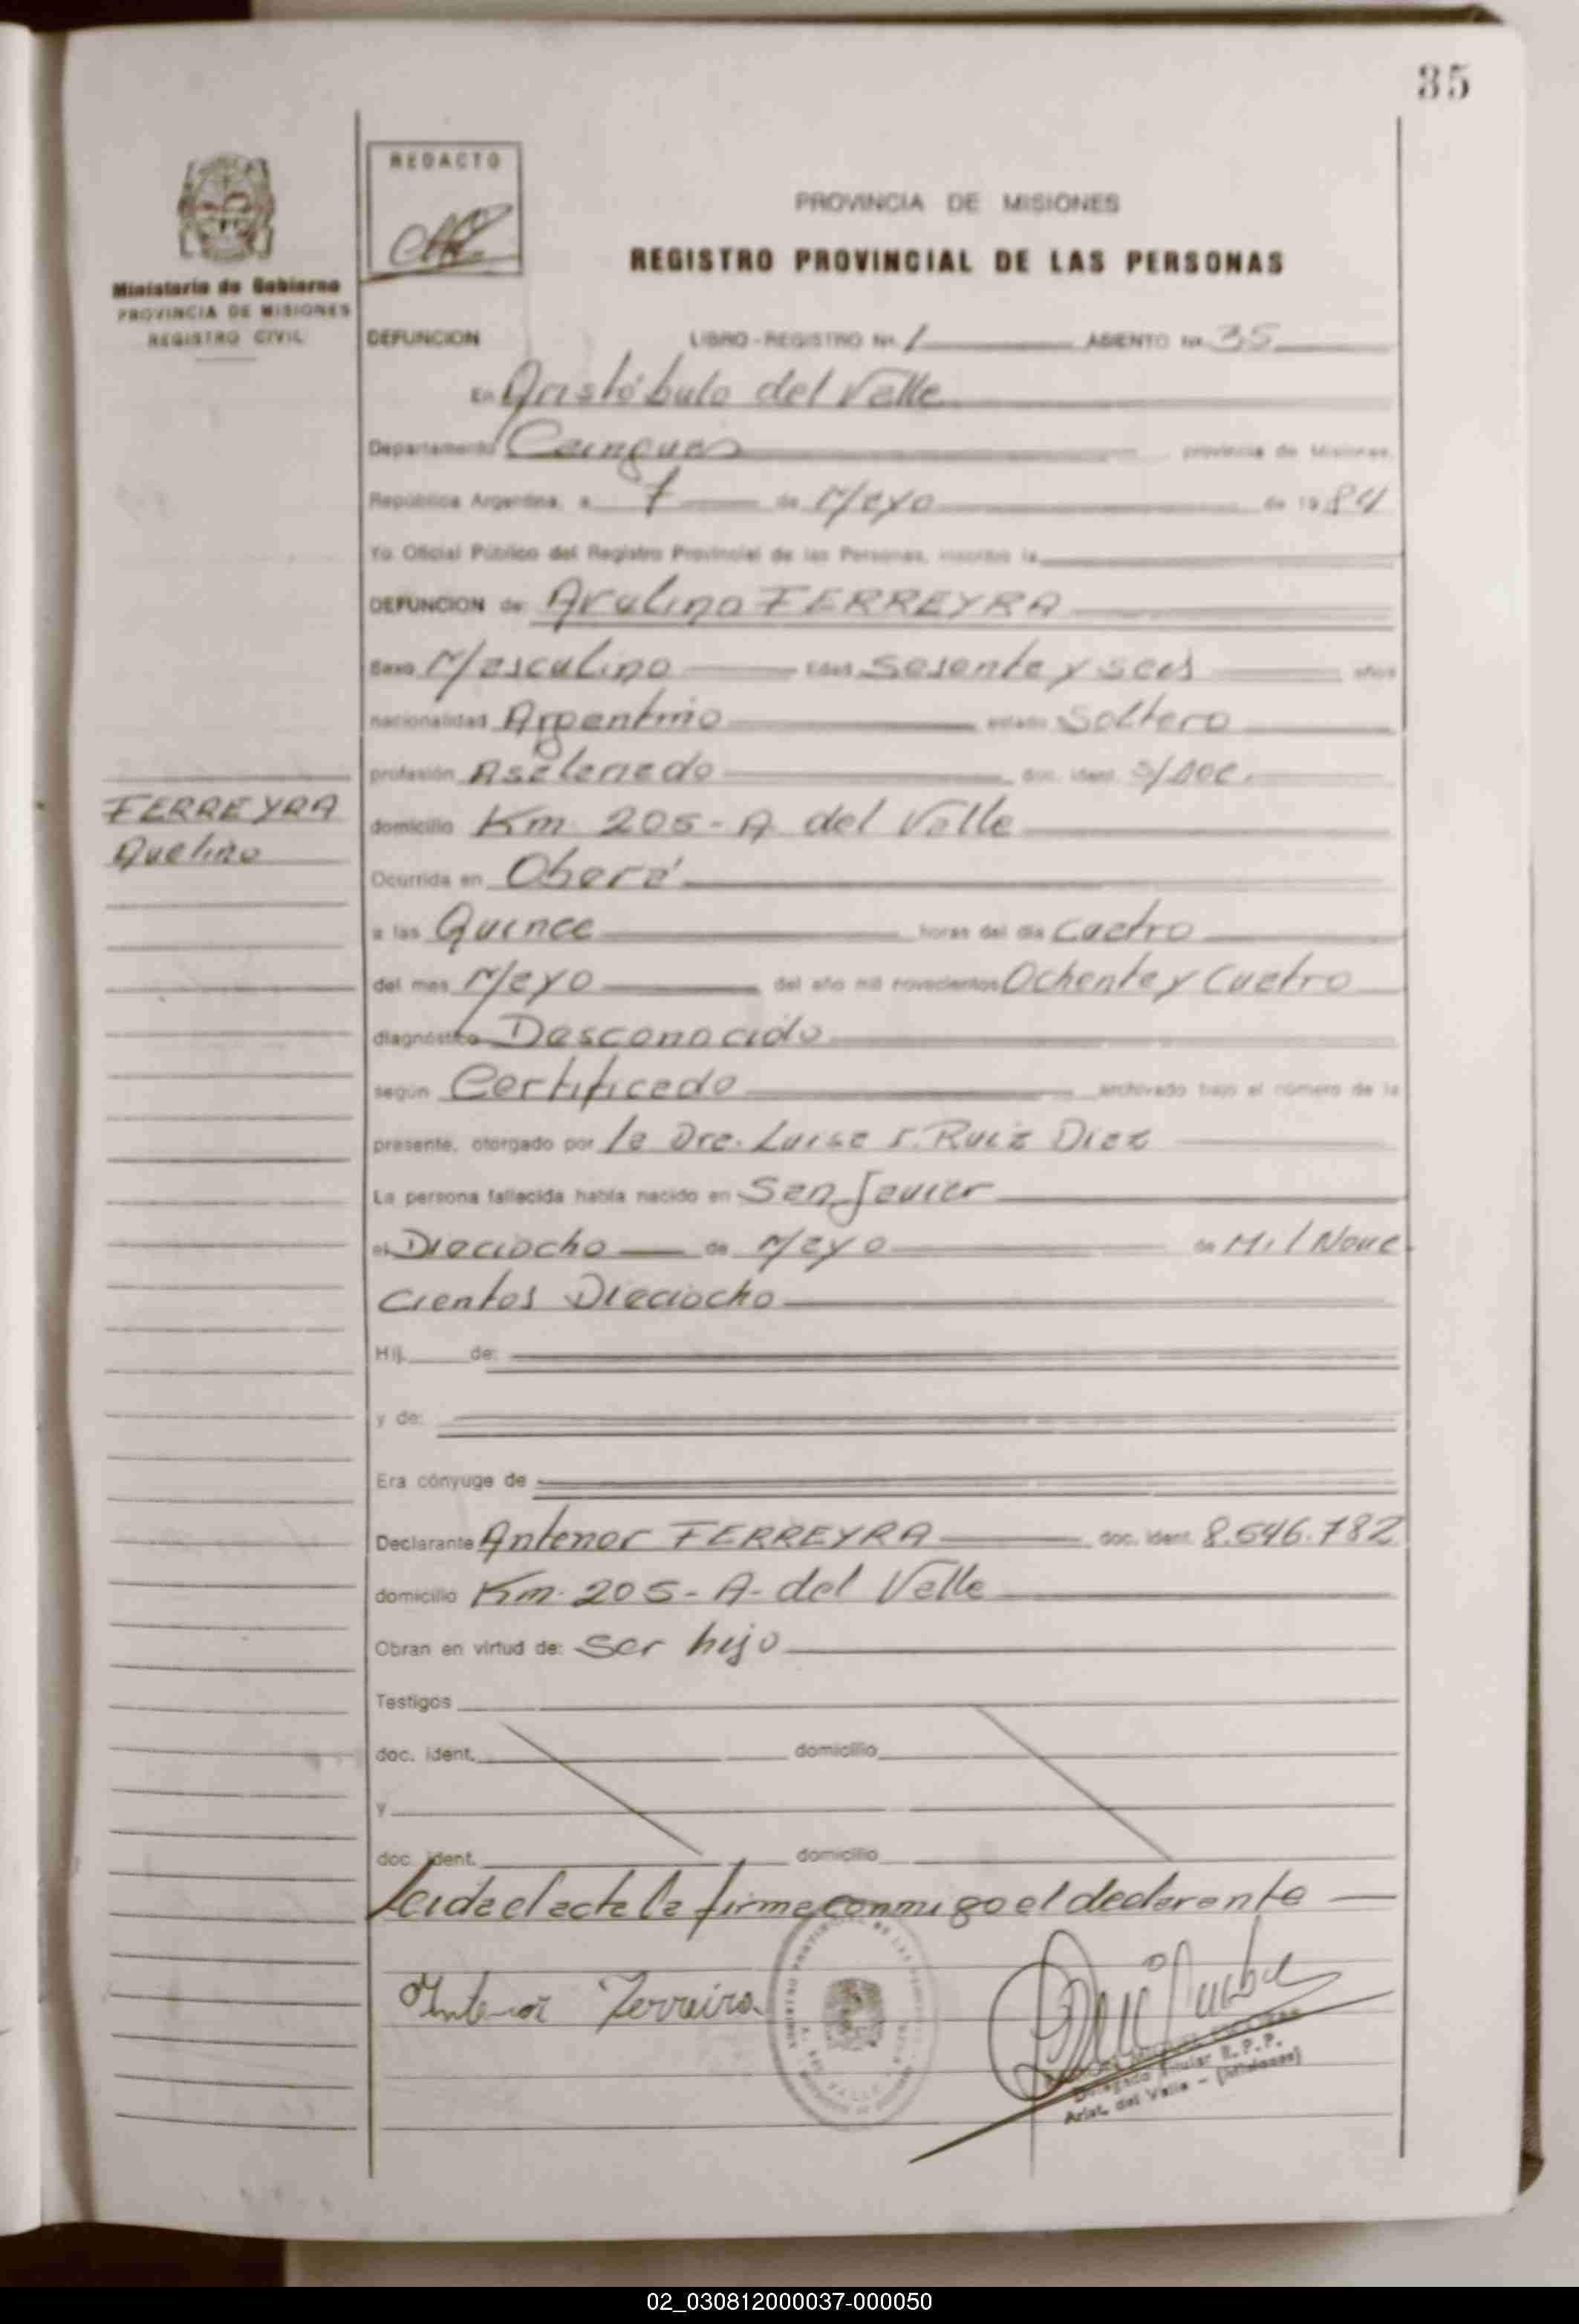 35
REDACTO
PROVINCIA DE MISIONES
REGISTRO PROVINCIAL DE LAS PERSONAS
Ministerio de Gobierno
PROVINCIA DE MISIONES
REGISTRO CIVIL
DEFUNCION LIBRO-REGISTRO Nº 1 ASIENTO Nº 35
En Aristóbulo del Valle
Departamento Cainguas provincia de Misiones,
República Argentina, a 7 de Mayo de 1984
Yo Oficial Público del Registro Provincial de las Personas, inscribo la
DEFUNCION de: Avelino FERREYRA
Sexo Masculino Edad Sesenta y seis años
nacionalidad Argentino estado Soltero
profesión Asalariado doc. ident. S/doc.
FERREYRA
Avelino
domicilio Km 205 - A. del Valle
Ocurrida en Oberá
a las Quince horas del día cuatro
del mes Mayo del año mil novecientos Ochenta y Cuatro
diagnóstico Desconocido
según Certificado archivado bajo el número de la
presente, otorgado por la Dra. Luisa S. Ruiz Diaz
La persona fallecida había nacido en San Javier
el Dieciocho de Mayo de Mil Nove
cientos Dieciocho
Hij de:
y de:
Era cónyuge de
Declarante Antenor FERREYRA doc. ident. 8.546.782
domicilio Km. 205 - A. del Valle
Obran en virtud de: ser hijo
Testigos
doc. ident. domicilio
y
doc. ident. domicilio
Leida el acta la firma conmigo el declarante
Antenor Ferreira
Delegado Titular R.P.P.
Arist. del Valle - (Misiones)
02_030812000037-000050